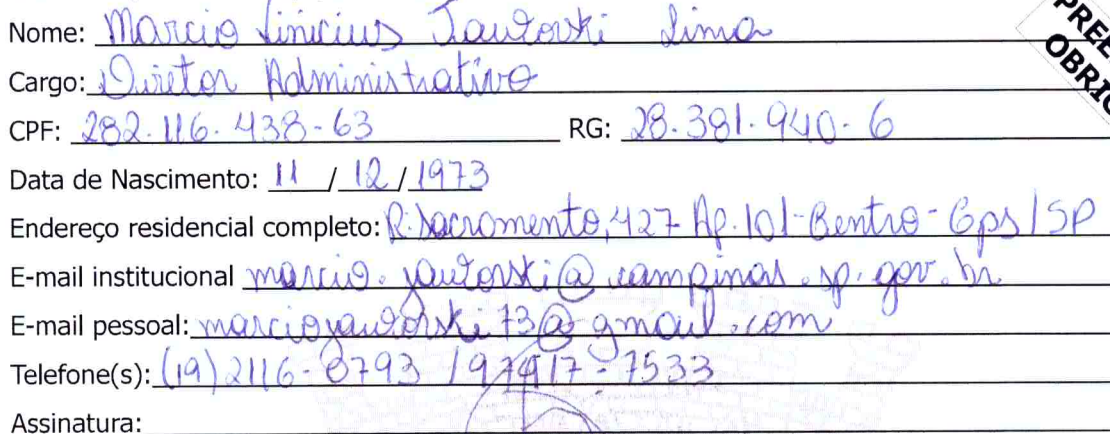 Nome: Marcio Vinicius Jaworski Lima
Cargo: Diretor Administrativo
CPF: 282.116.438-63 RG: 28.381.940-6
Data de Nascimento: 11 / 12 / 1973
Endereço residencial completo: R. Sacramento, 427 Ap. 101 - Centro - Cps / SP
E-mail institucional marcio.jaworski@campinas.sp.gov.br
E-mail pessoal: marciojaworski73@gmail.com
Telefone(s): (19) 2116-8793 / 97417-7533
Assinatura: